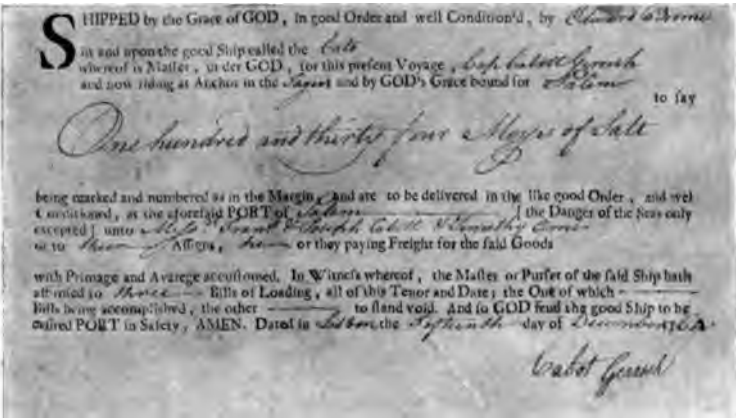 SHIPPED by the Grace of GOD, in good Order and well Condition'd, by Edward
in and upon the good Ship called the Cato
whereof is Master, under GOD, for this present Voyage, Cap Cabot Gerrish
and now riding at Anchor in the Tagus and by GOD's Grace bound for Salem
to say
One hundred and thirty four Moyes of Salt
being marked and numbered as in the Margin, and are to be delivered in the like good Order, and wel
Conditioned, at the aforesaid PORT of Salem [the Danger of the Seas only
excepted] unto Mess. Fran. & Joseph Cabott & Timothy
or to their Assigns, he or they paying Freight for the said Goods
with Primage and Avarege accustomed. In Witness whereof, the Master or Purser of the said Ship hath
affirmed to three Bills of Loading, all of this Tenor and Date; the One of which
Bills being accomplished, the other to stand void. And so GOD send the good Ship to her
desired PORT in Safety, AMEN. Dated in Lisbon the Fifteenth day of December
Cabot Gerrish